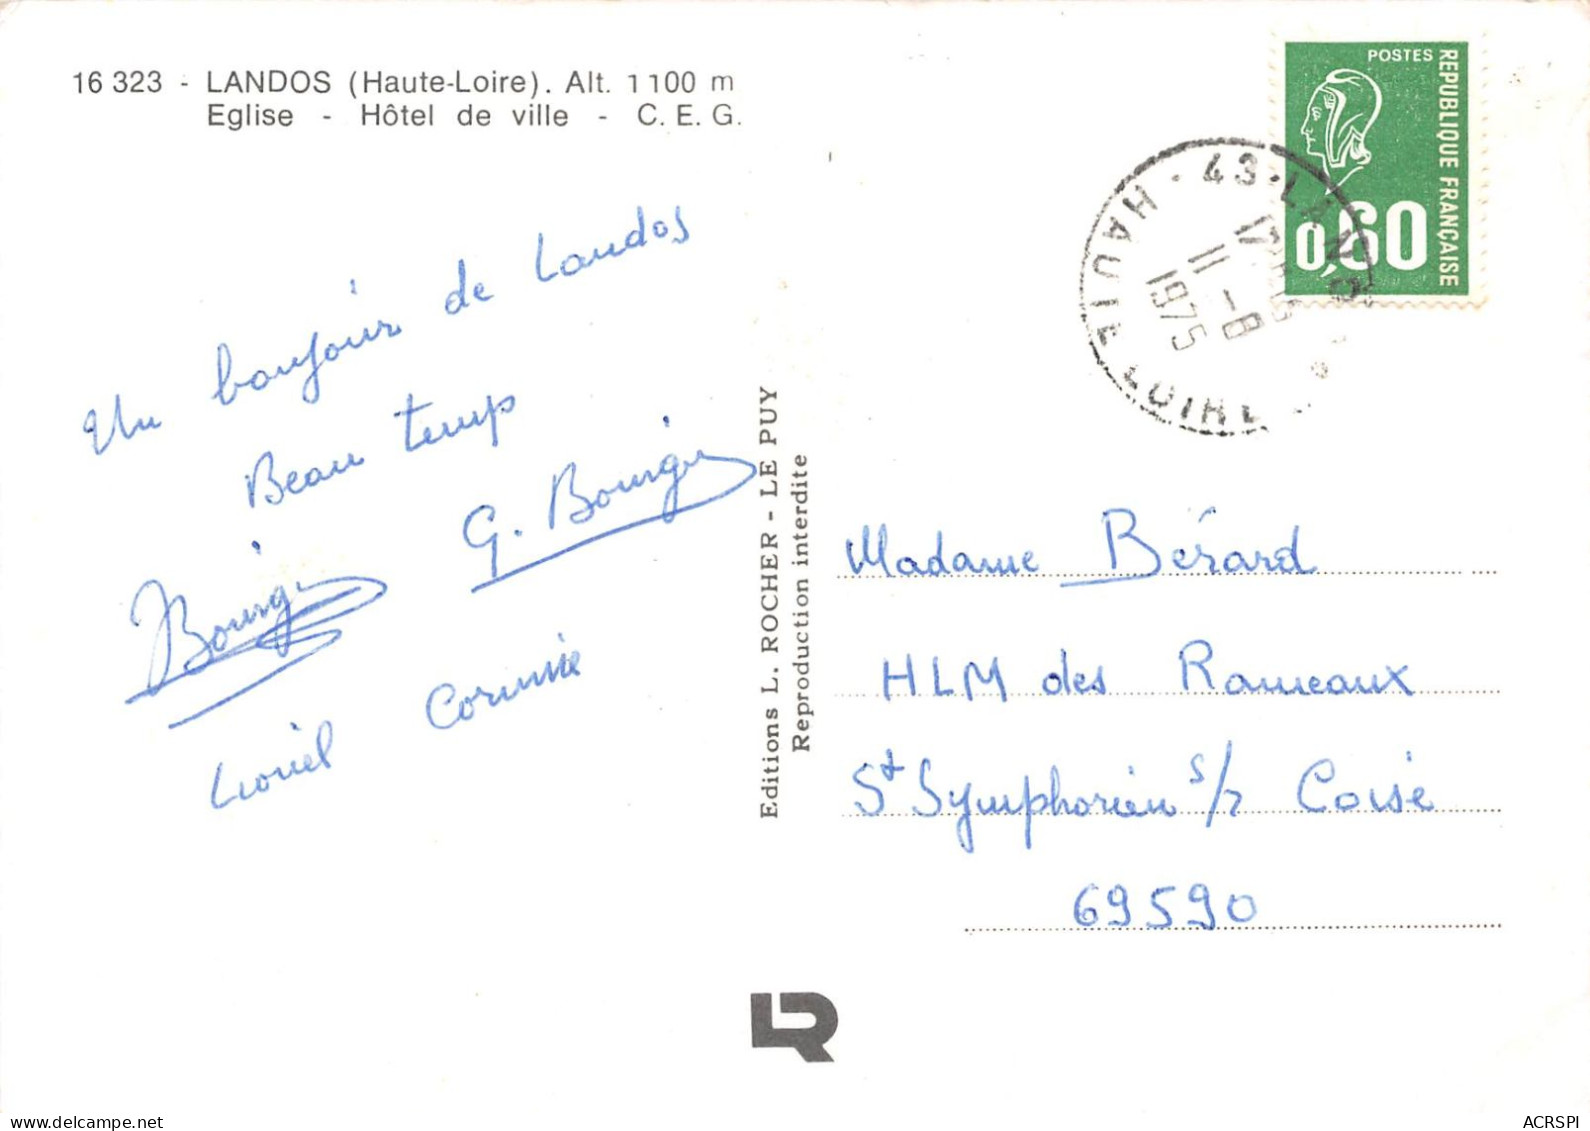 16 323 - LANDOS (Haute-Loire). Alt. 1100 m
Eglise - Hôtel de ville - C. E. G.
Un bonjour de Landos
Beau temps
G. Bourgin
Bourgin
Lionel Corinne
Editions L. ROCHER - LE PUY
Reproduction interdite
POSTES
REPUBLIQUE FRANÇAISE
0,60
43 · LANDOS
11 -8
1975
HAUTE LOIRE
Madame Bérard
HLM des Rameaux
St Symphorien s/ Coise
69590
LR
ACRSPI